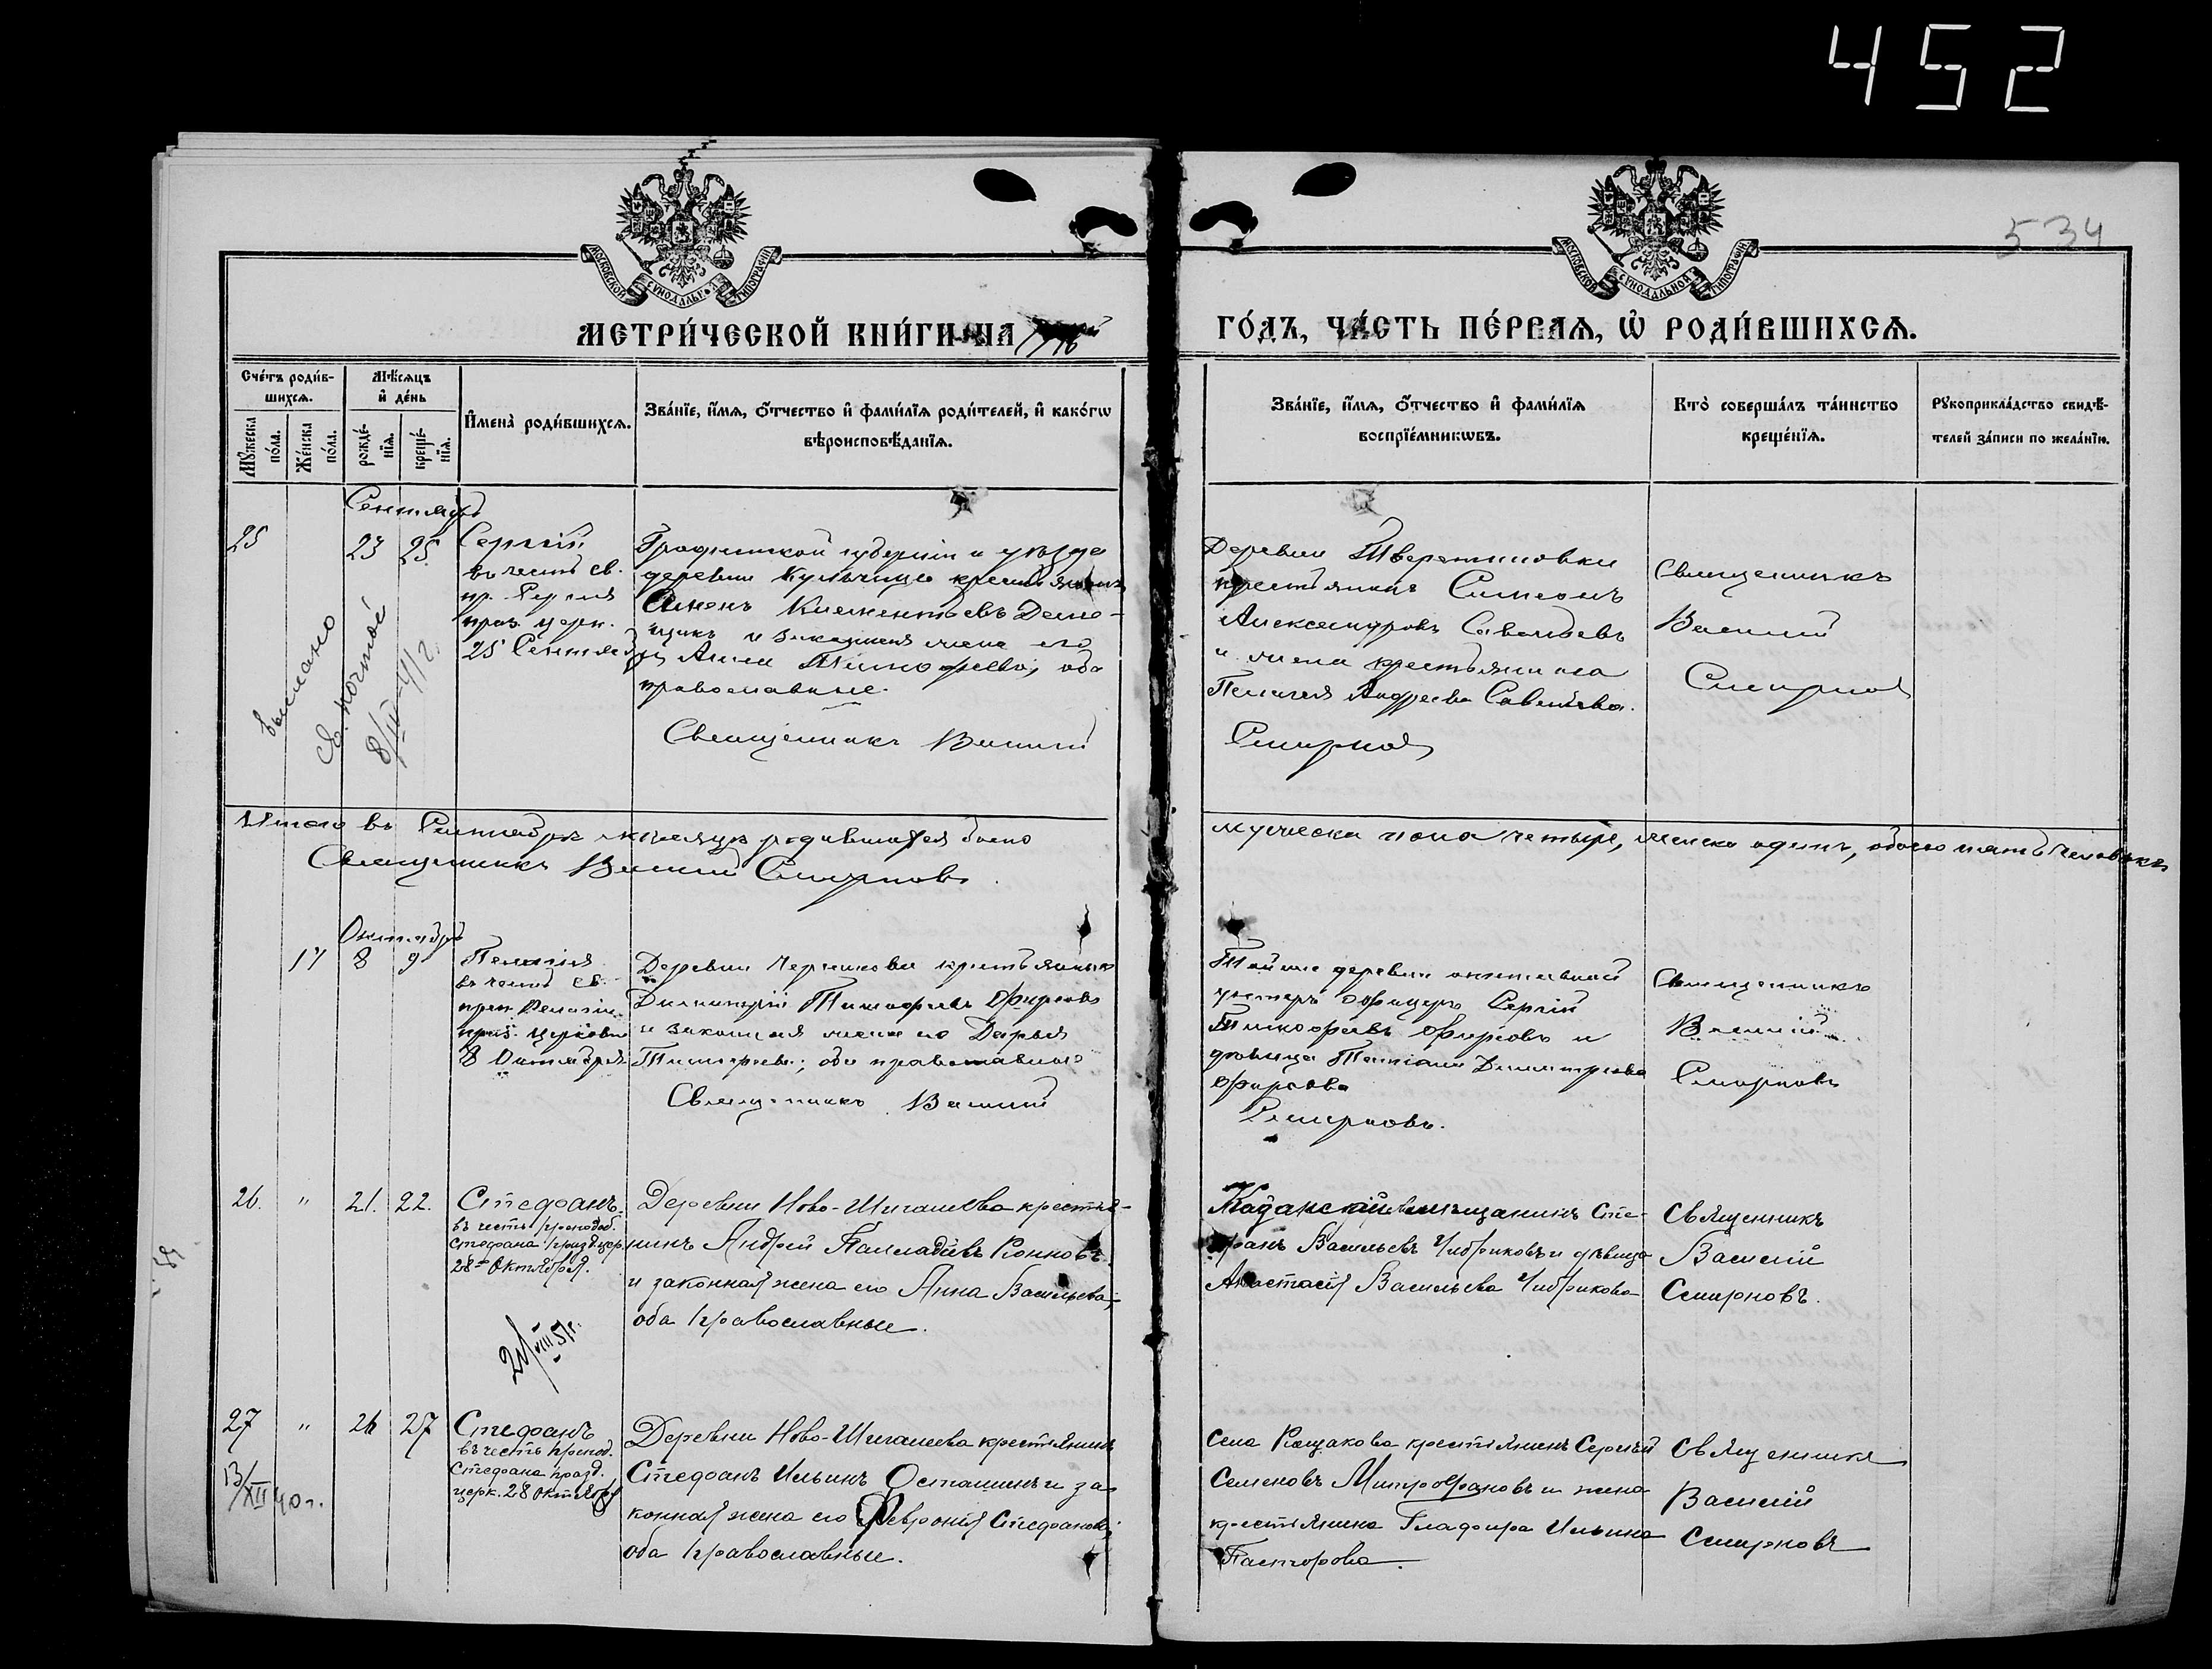 452
534
МОСКОВСКОЙ СѴНОДАЛЬНОЙ ТИПОГРАФІИ
МОСКОВСКОЙ СѴНОДАЛЬНОЙ ТИПОГРАФІИ
МЕТРИ́ЧЕСКОЙ КНИ́ГИ НА 1916 ГО́ДЪ, ЧА́СТЬ ПЕ́РВАѦ, Ѡ҆ РОДИ́ВШИХСѦ.
Сче́тъ роди́в-
шихсѧ.
Мꙋ́жеска по́ла.
Же́нска по́ла.
Мѣ́сѧцъ
и҆ де́нь
рожде́-
нїѧ.
креще́-
нїѧ.
И҆мена̀ роди́вшихсѧ.
Зва́нїе, и҆́мѧ, ѻ҆́тчество и҆ фами́лїѧ роди́телей, и҆ како́гѡ
вѣроисповѣ́данїѧ.
Зва́нїе, и҆́мѧ, ѻ҆́тчество и҆ фами́лїѧ
воспрїе́мникѡвъ.
Кто̀ соверша́лъ та́инство
креще́нїѧ.
Рꙋкоприкла́дство свидѣ́-
телей за́писи по жела́нїю.
Сентябрь
25 23 25 Сергій
въ честь св.
пр. Сергія
праз. церк.
25 Сентяб
Гродненской губерніи и уѣзда
деревни крестьянинъ
Симонъ Климентьевъ
и законная жена его
Анна оба
православные.
Священникъ Василий
Деревни Тверетиновки
крестьянинъ Симеонъ
Александровъ Савельевъ
и жена крестьянина
Пелагія Андреева Савельева.
Смирнов
Священникъ
Василий
Смирнов
выслано
св. почтой
Итого въ Сентябрѣ мѣсяцѣ родившихся было мужеска пола четыре, женска одинъ, обоего пять человѣкъ
Священникъ Василий Смирновъ.
Октябрь
17 8 9 Пелагія
въ честь св.
преп. Пелагіи
праз. церковью
8 Октября
Деревни крестьянинъ
Димитрій Тимофеевъ Фирсовъ
и законная жена его Дарья
оба православные
Священникъ Василий
Той же деревни
унтеръ офицеръ Сергій
Тимофеевъ Фирсовъ и
дѣвица Димитриева
Фирсова
Смирновъ.
Священникъ
Василий
Смирновъ
26. " 21. 22. Стефанъ.
въ честь преподоб.
Стефана празд. цер.
28го Октября.
Деревни Ново-Шигалеева крестья-
нинъ Андрей Палладіевъ
и законная жена его Анна Васильева,
оба православные.
мѣщанинъ Сте-
фанъ Васильевъ Чибриковъ и дѣвица
Анастасія Васильева Чибрикова
Священникъ
Василий
Смирновъ.
21/VIII 51г.
27 " 26 27 Стефанъ
въ честь препод.
Стефана празд.
церк. 28 Октября
13/XII 40 г.
Деревни Ново-Шигалеева крестьянинъ
Стефанъ Ильинъ Осташинъ и за-
конная жена его Феврония Стефанова,
оба православные.
Села Кощакова крестьянинъ Сергѣй
Семеновъ Митрофановъ и жена
крестьянина Глафира Ильина
Священникъ
Василий
Смирновъ